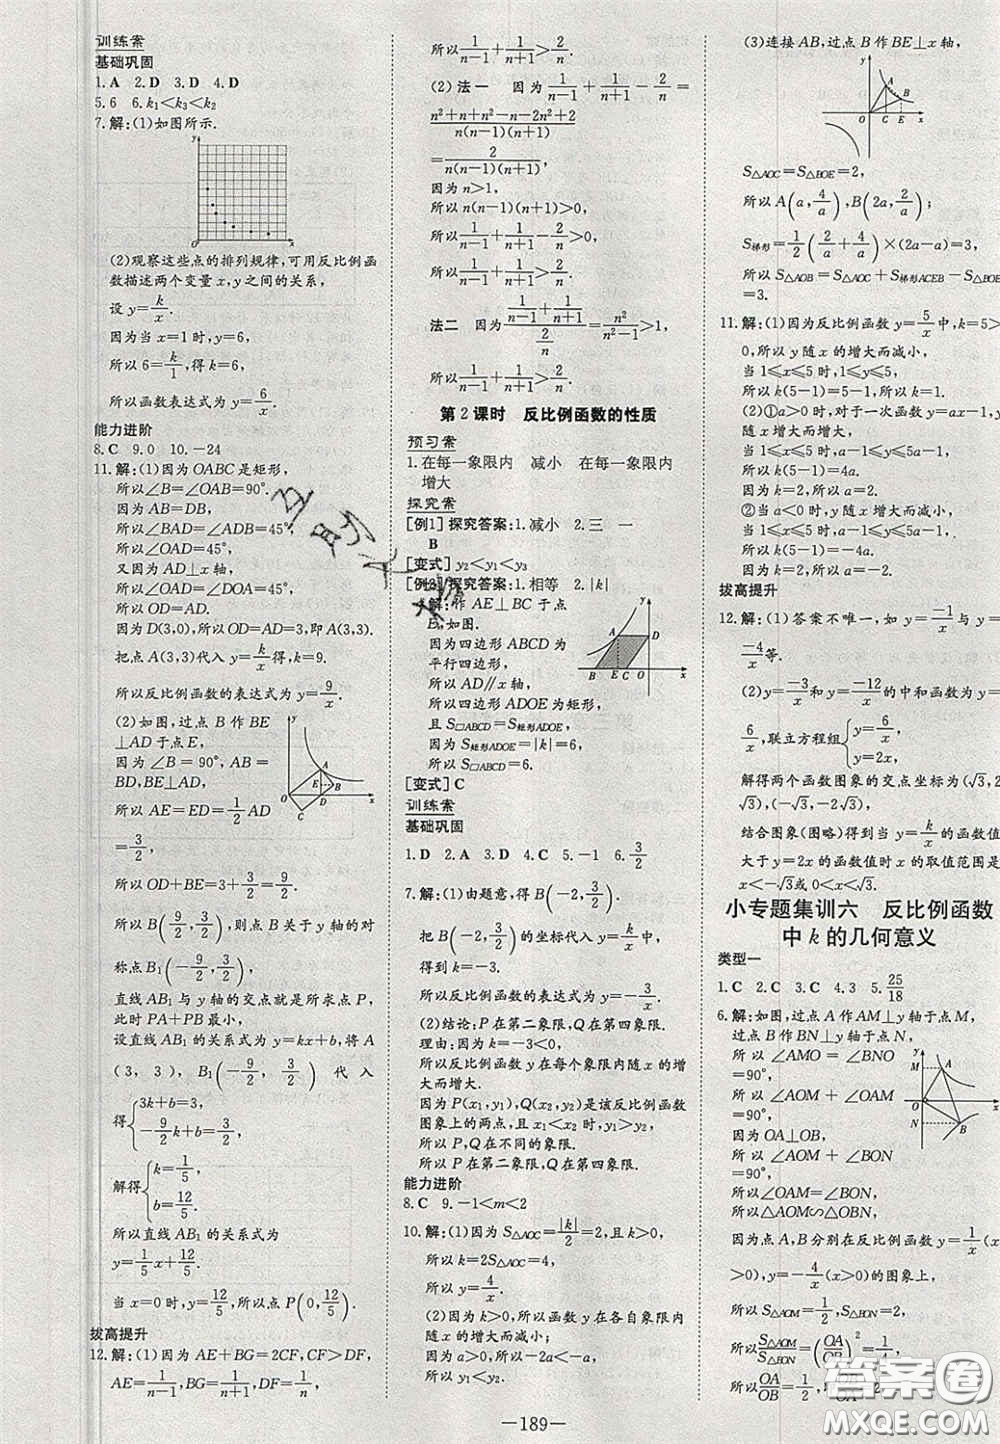 训练案
基础巩固
1. A 2. D 3. D 4. D
5. 6 6. k₁<k₃<k₂
7. 解:(1)如图所示.
(2)观察这些点的排列规律,可用反比例函
数描述两个变量 x,y 之间的关系,
设 y=k/x.
因为当 x=1 时,y=6,
所以 6=k/1,得 k=6,
所以函数表达式为 y=6/x.
能力进阶
8. C 9. 0 10. -24
11. 解:(1)因为 OABC 是矩形,
所以∠B=∠OAB=90°.
因为 AB=DB,
所以∠BAD=∠ADB=45°,
所以∠OAD=45°,
又因为 AD⊥x 轴,
所以∠OAD=∠DOA=45°,
所以 OD=AD.
因为 D(3,0),所以 OD=3,即 A(3,3).
把点 A(3,3)代入 y=k/x 得 k=9.
所以反比例函数的表达式为 y=9/x.
(2)如图,过点 B 作 BE
⊥AD 于点 E,
因为∠B = 90°, AB =
DB,BE⊥AD,
所以 AE=ED=1/2 AD
=3/2,
所以 OD+BE=3+3/2=9/2.
所以 B(9/2, 3/2),则点 B 关于 y 轴的对
称点 B₁(-9/2, 3/2),
直线 AB₁ 与 y 轴的交点就是所求点 P,
此时 PA+PB 最小,
设直线 AB₁ 的关系式为 y=kx+b,将 A
(3, 3), B₁(-9/2, 3/2) 代入
得{3k+b=3, -9/2 k+b=3/2,
解得{k=1/5, b=12/5.
所以直线 AB₁ 的关系式为
y=1/5 x+12/5.
当 x=0 时,y=12/5,所以点 P(0, 12/5).
拔高提升
12. 解:(1)因为 AE+BG=2CF,CF>DF,
AE=1/(n-1), BG=1/(n+1), DF=1/n,
所以 1/(n-1)+1/(n+1)>2/n.
(2)法一 因为 1/(n-1)+1/(n+1)-2/n=
(n²+n+n²-n-2n²+2)/(n(n-1)(n+1))
=2/(n(n-1)(n+1)),
因为 n>1,
所以 n(n-1)(n+1)>0,
所以 1/(n-1)+1/(n+1)-2/n>0,
所以 1/(n-1)+1/(n+1)>2/n.
法二 因为 (1/(n-1)+1/(n+1))/(2/n)=n²/(n²-1)>1,
所以 1/(n-1)+1/(n+1)>2/n.
第 2 课时 反比例函数的性质
预习案
1. 在每一象限内 减小 在每一象限内
增大
探究案
[例1] 探究答案:1. 减小 2. 三 一
B
[变式] y₂<y₁<y₃
探究答案:1. 相等 2. |k|
解:作 AE⊥BC 于点
E,如图.
因为四边形 ABCD 为
平行四边形,
所以 AD∥x 轴,
所以四边形 ADOE 为矩形,
且 S□ABCD=S矩形ADOE,
因为 S矩形ADOE=|k|=6,
所以 S□ABCD=6.
[变式] C
训练案
基础巩固
1. D 2. A 3. D 4. C 5. -1 6. 3/2
7. 解:(1)由题意,得 B(-2, 3/2),
把 B(-2, 3/2)的坐标代入 y=k/x 中,
得到 k=-3,
所以反比例函数的表达式为 y=-3/x.
(2)结论:P 在第二象限,Q 在第四象限.
理由:因为 k=-3<0,
所以反比例函数 y 在每个象限内随 x 的
增大而增大.
因为 P(x₁,y₁),Q(x₂,y₂)是该反比例函数
图象上的两点,且 x₁<x₂ 时,y₁>y₂,
所以 P,Q 在不同的象限.
所以 P 在第二象限,Q 在第四象限.
能力进阶
8. C 9. -1<m<2
10. 解:(1)因为 S△AOC=|k|/2=2,且 k>0,
所以 k=2S△AOC=4,
所以 y=4/x.
(2)因为 k>0,所以函数 y 在各自象限内
随 x 的增大而减小;
因为 a>0,所以-2a<-a,
所以 y₁>y₂.
(3)连接 AB,过点 B 作 BE⊥x 轴,
S△AOC=S△BOE=2,
所以 A(a, 4/a), B(2a, 2/a),
S梯形=1/2(2/a+4/a)×(2a-a)=3,
所以 S△AOB=S△AOC+S梯形ACEB-S△BOE
=3.
11. 解:(1)因为反比例函数 y=5/x 中,k=5>
0,所以 y 随 x 的增大而减小,
当 1≤x≤5 时,1≤y≤5,
所以 k(5-1)=5-1,所以 k=1.
(2)①a>0 时,对于一次函数 y=ax-1,
当 1≤x≤5 时,a-1≤y≤5a-1,
所以 k(5-1)=4a.
因为 k=2,所以 a=2;
②当 a<0 时,
当 1≤x≤5 时,5a-1≤y≤a-1,
所以 k(5-1)=-4a.
因为 k=2,所以 a=-2.
拔高提升
12. 解:(1)答案不唯一,如 y=-1/x 与 y=
-4/x 等.
(2)y=-3/x 和 y=-12/x 的中和函数 y=
6/x,联立方程组{y=6/x, y=2x,
解得两个函数图象的交点坐标为(√3,2
√3),(-√3,-2√3),
结合图象(图略)得到当 y=k/x 的函数值
大于 y=2x 的函数值时 x 的取值范围是
x<-√3或 0<x<√3.
小专题集训六 反比例函数
中 k 的几何意义
类型一
1. C 2. C 3. C 4. 3 5. 25/18
6. 解:如图,过点 A 作 AM⊥y 轴于点 M,
过点 B 作 BN⊥y 轴于点 N,
所以∠AMO=∠BNO
=90°,
所以∠AOM+∠OAM
=90°,
因为 OA⊥OB,
所以∠AOM+∠BON
=90°,
所以∠OAM=∠BON,
所以△AOM∽△OBN,
因为点 A,B 分别在反比例函数 y=1/x(x
>0),y=-4/x(x>0)的图象上,
所以 S△AOM=1/2,S△BON=2,
所以 S△AOM/S△BON=(OA/OB)²=1/4,
所以 OA/OB=1/2.
—189—
答案圈
MXQE.COM